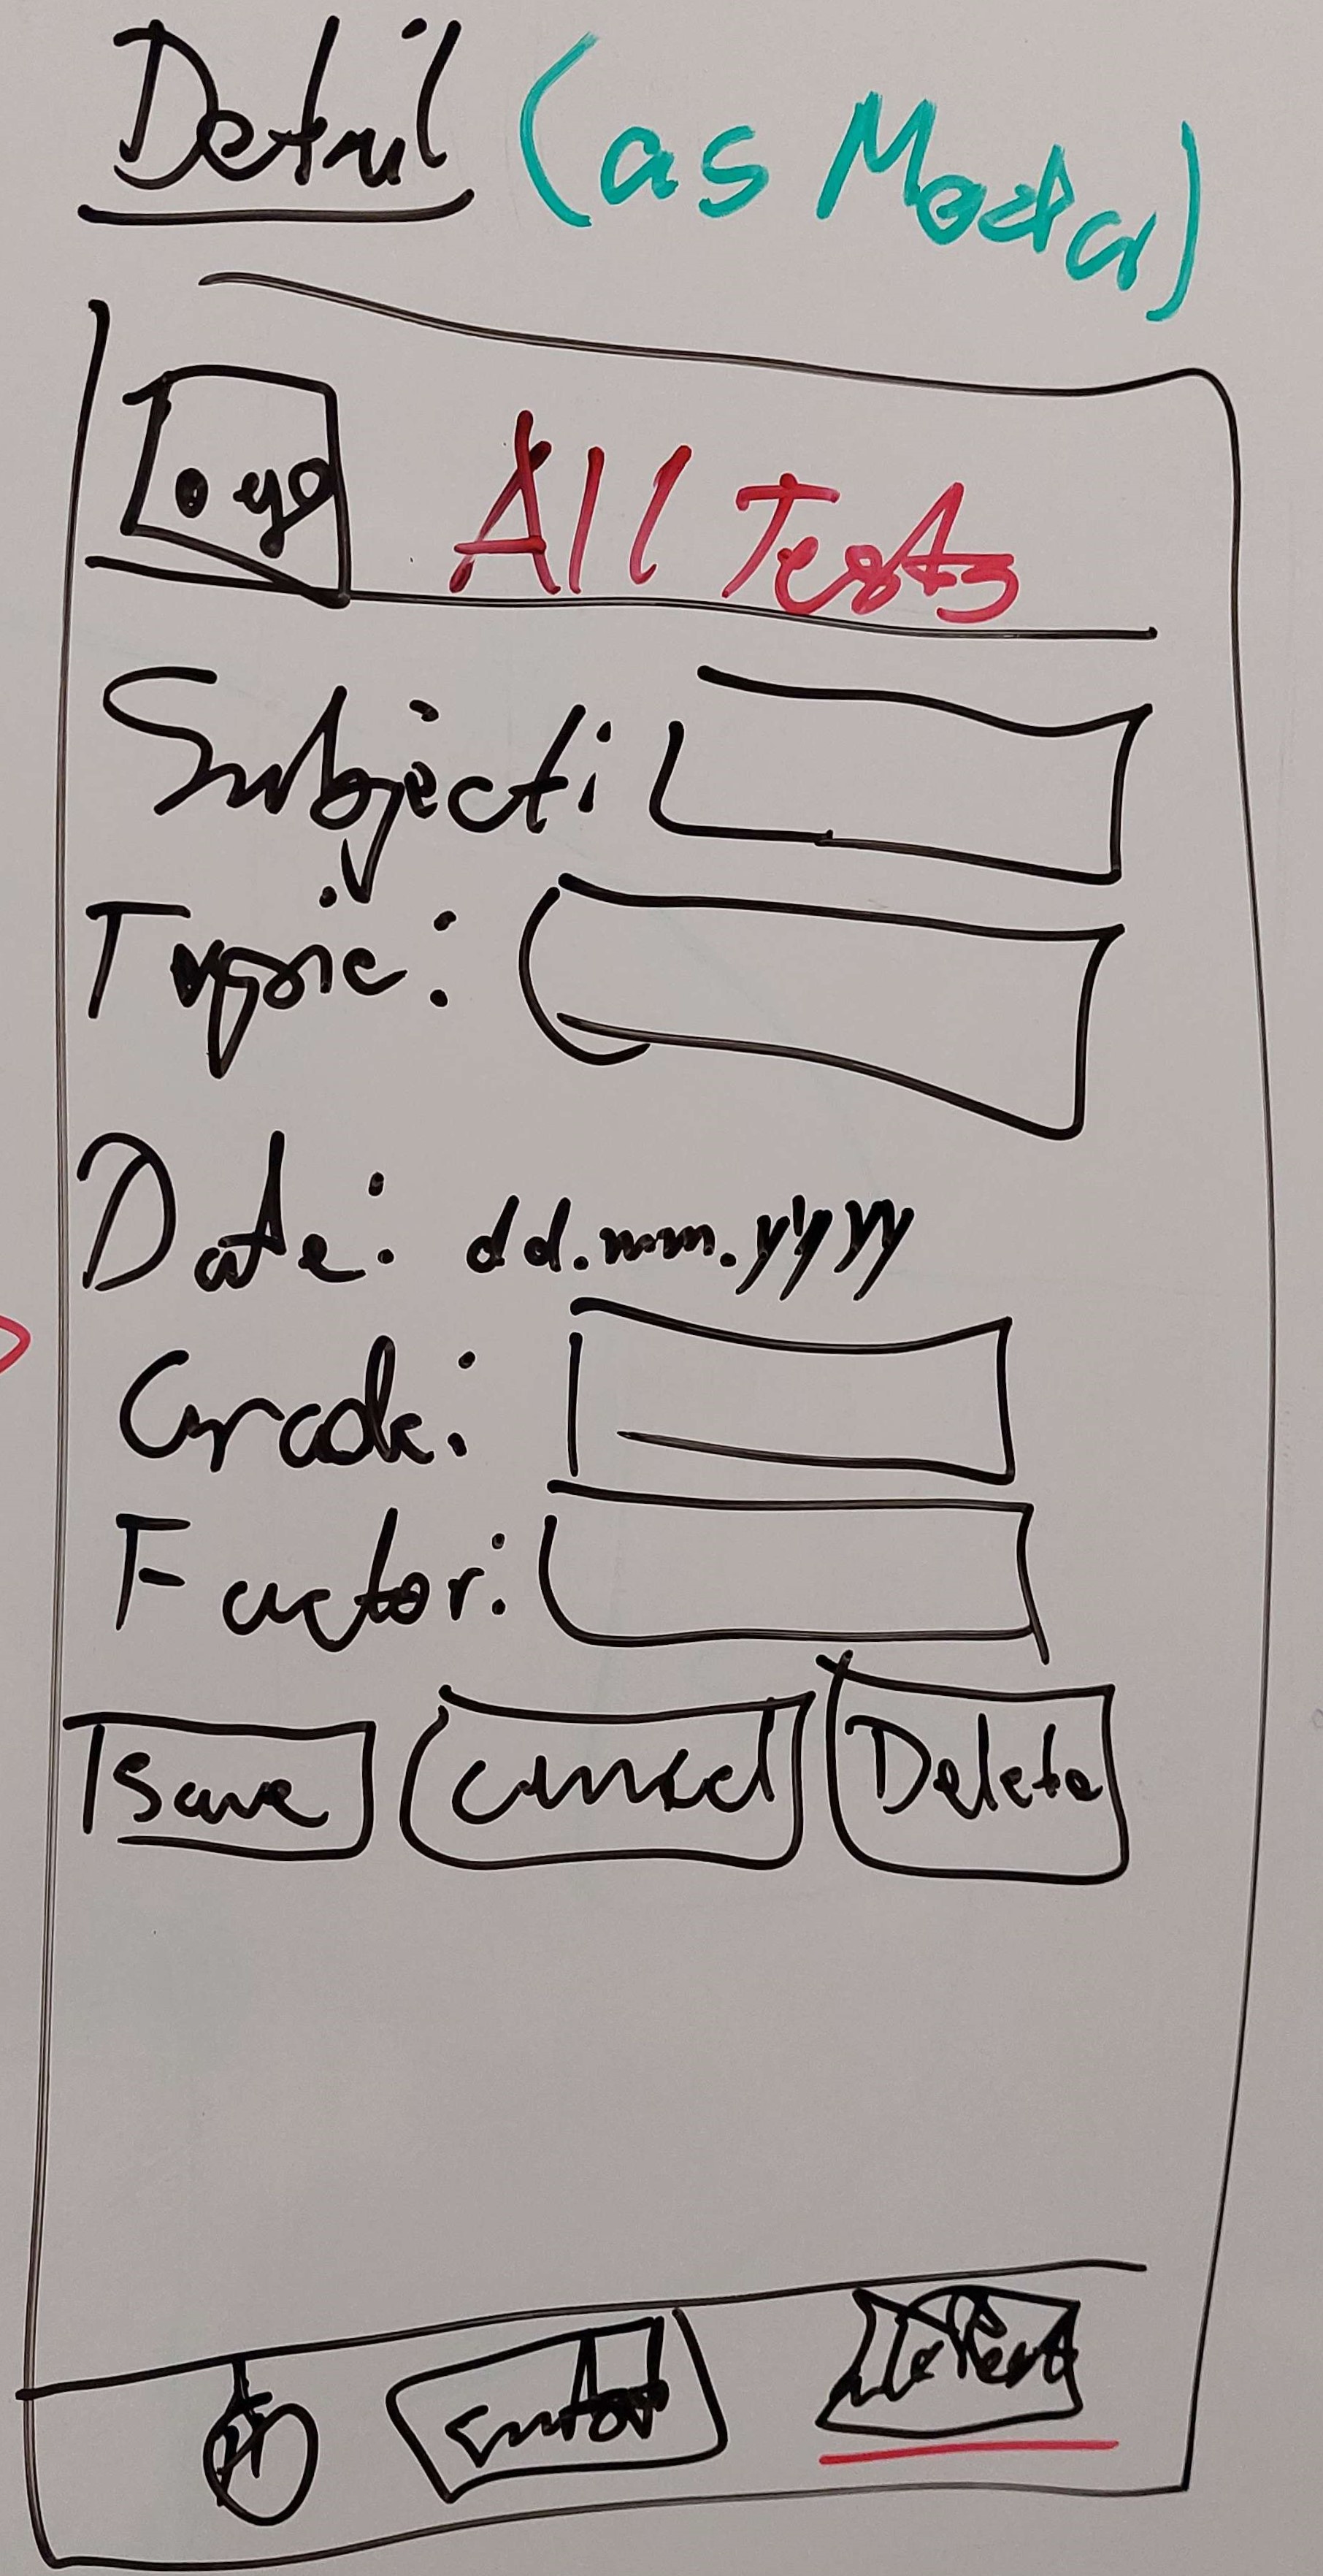 Detail (as Modal)
Logo All Tests
Subject:
Topic:
Date: dd.mm.yyyy
Grade:
Factor:
Save Cancel Delete
Enter